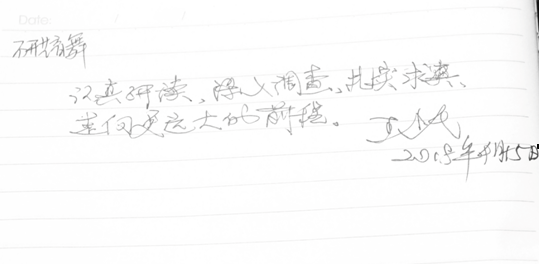 Date:
研究舞
认真研读、深入调查、扎实求真、
走向更远大的前程。
2019年4月15日